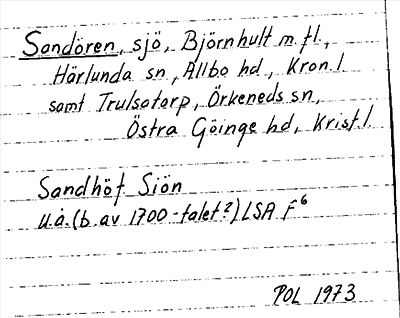 Sandören, sjö, Björnhult m.fl.,
Härlunda sn, Allbo hd, Kron.l
samt Trulsatorp, Örkeneds sn,
Östra Göinge hd, Krist.l.
Sandhöf Siön
u.å. (b. av 1700-talet?) LSA F6
POL 1973